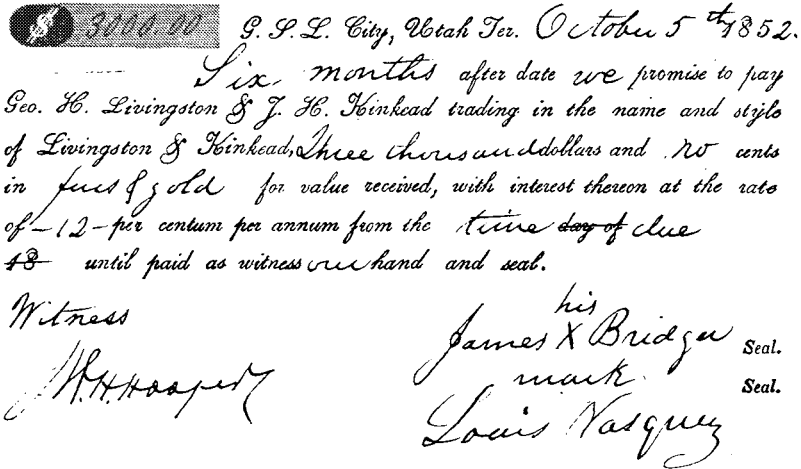 $ 3000.00 G. S. L. City, Utah Ter. October 5th 1852.
Six months after date we promise to pay
Geo. H. Livingston & J. H. Kinkead trading in the name and style
of Livingston & Kinkead, Three thousand dollars and no cents
in furs & gold for value received, with interest thereon at the rate
of - 12 - per centum per annum from the time day of due
18 until paid as witness our hand and seal.
Witness
his
James X Bridger Seal.
mark Seal.
W. H. Hooper
Louis Vasquez